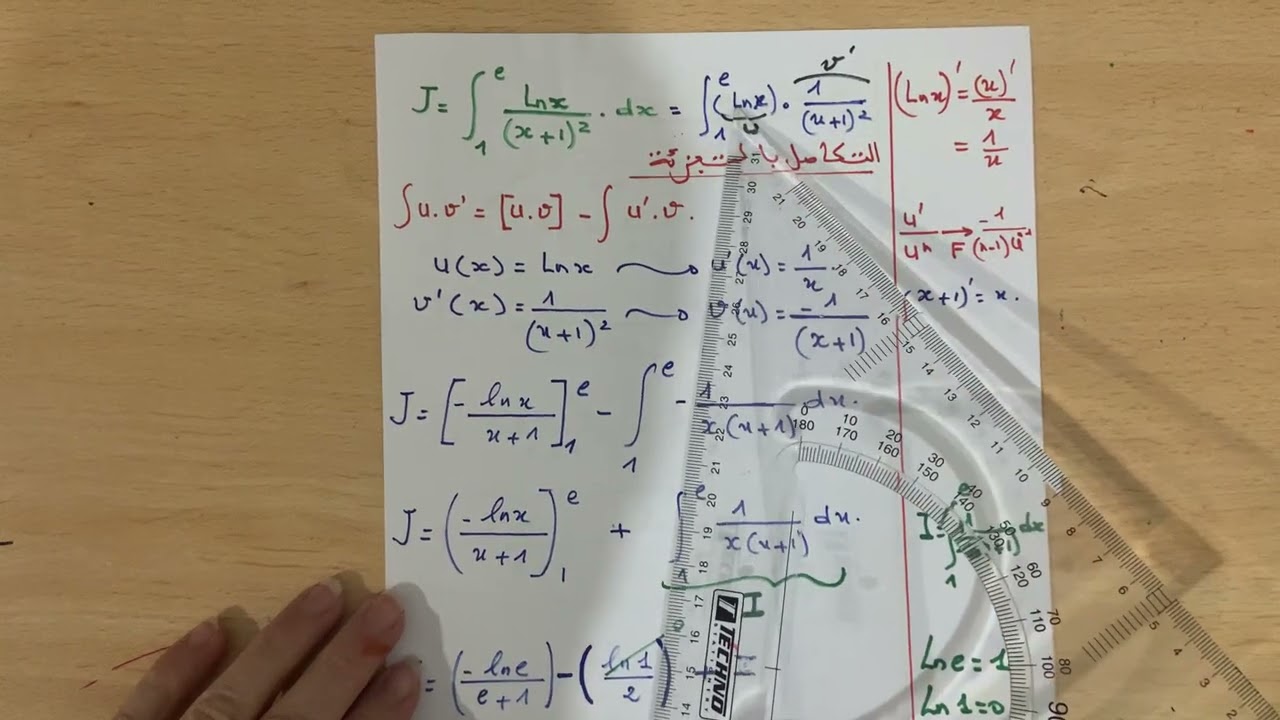 J = ∫₁ᵉ Lnx/(x+1)² . dx = ∫₁ᵉ (Lnx) . 1/(x+1)²
u v'
التكامل بالتجزئة
∫u.v' = [u.v] - ∫u'.v.
u(x) = Lnx (x) = 1/x
v'(x) = 1/(x+1)² (x) = -1/(x+1)
J = [-lnx/(x+1)]₁ᵉ - ∫₁ᵉ -1/(x(x+1)) dx.
J = (-lnx/(x+1)]₁ᵉ + ∫₁ᵉ 1/(x(x+1)) dx.
I
= (-lne/(e+1)) - (ln1/2)
(Lnx)' = (x)'/x
= 1/x
u'/uⁿ → F -1/((n-1)uⁿ⁻¹)
(x+1)' = x.
I = ∫₁ᵉ dx
Lne = 1
Ln1 = 0
TECHNO